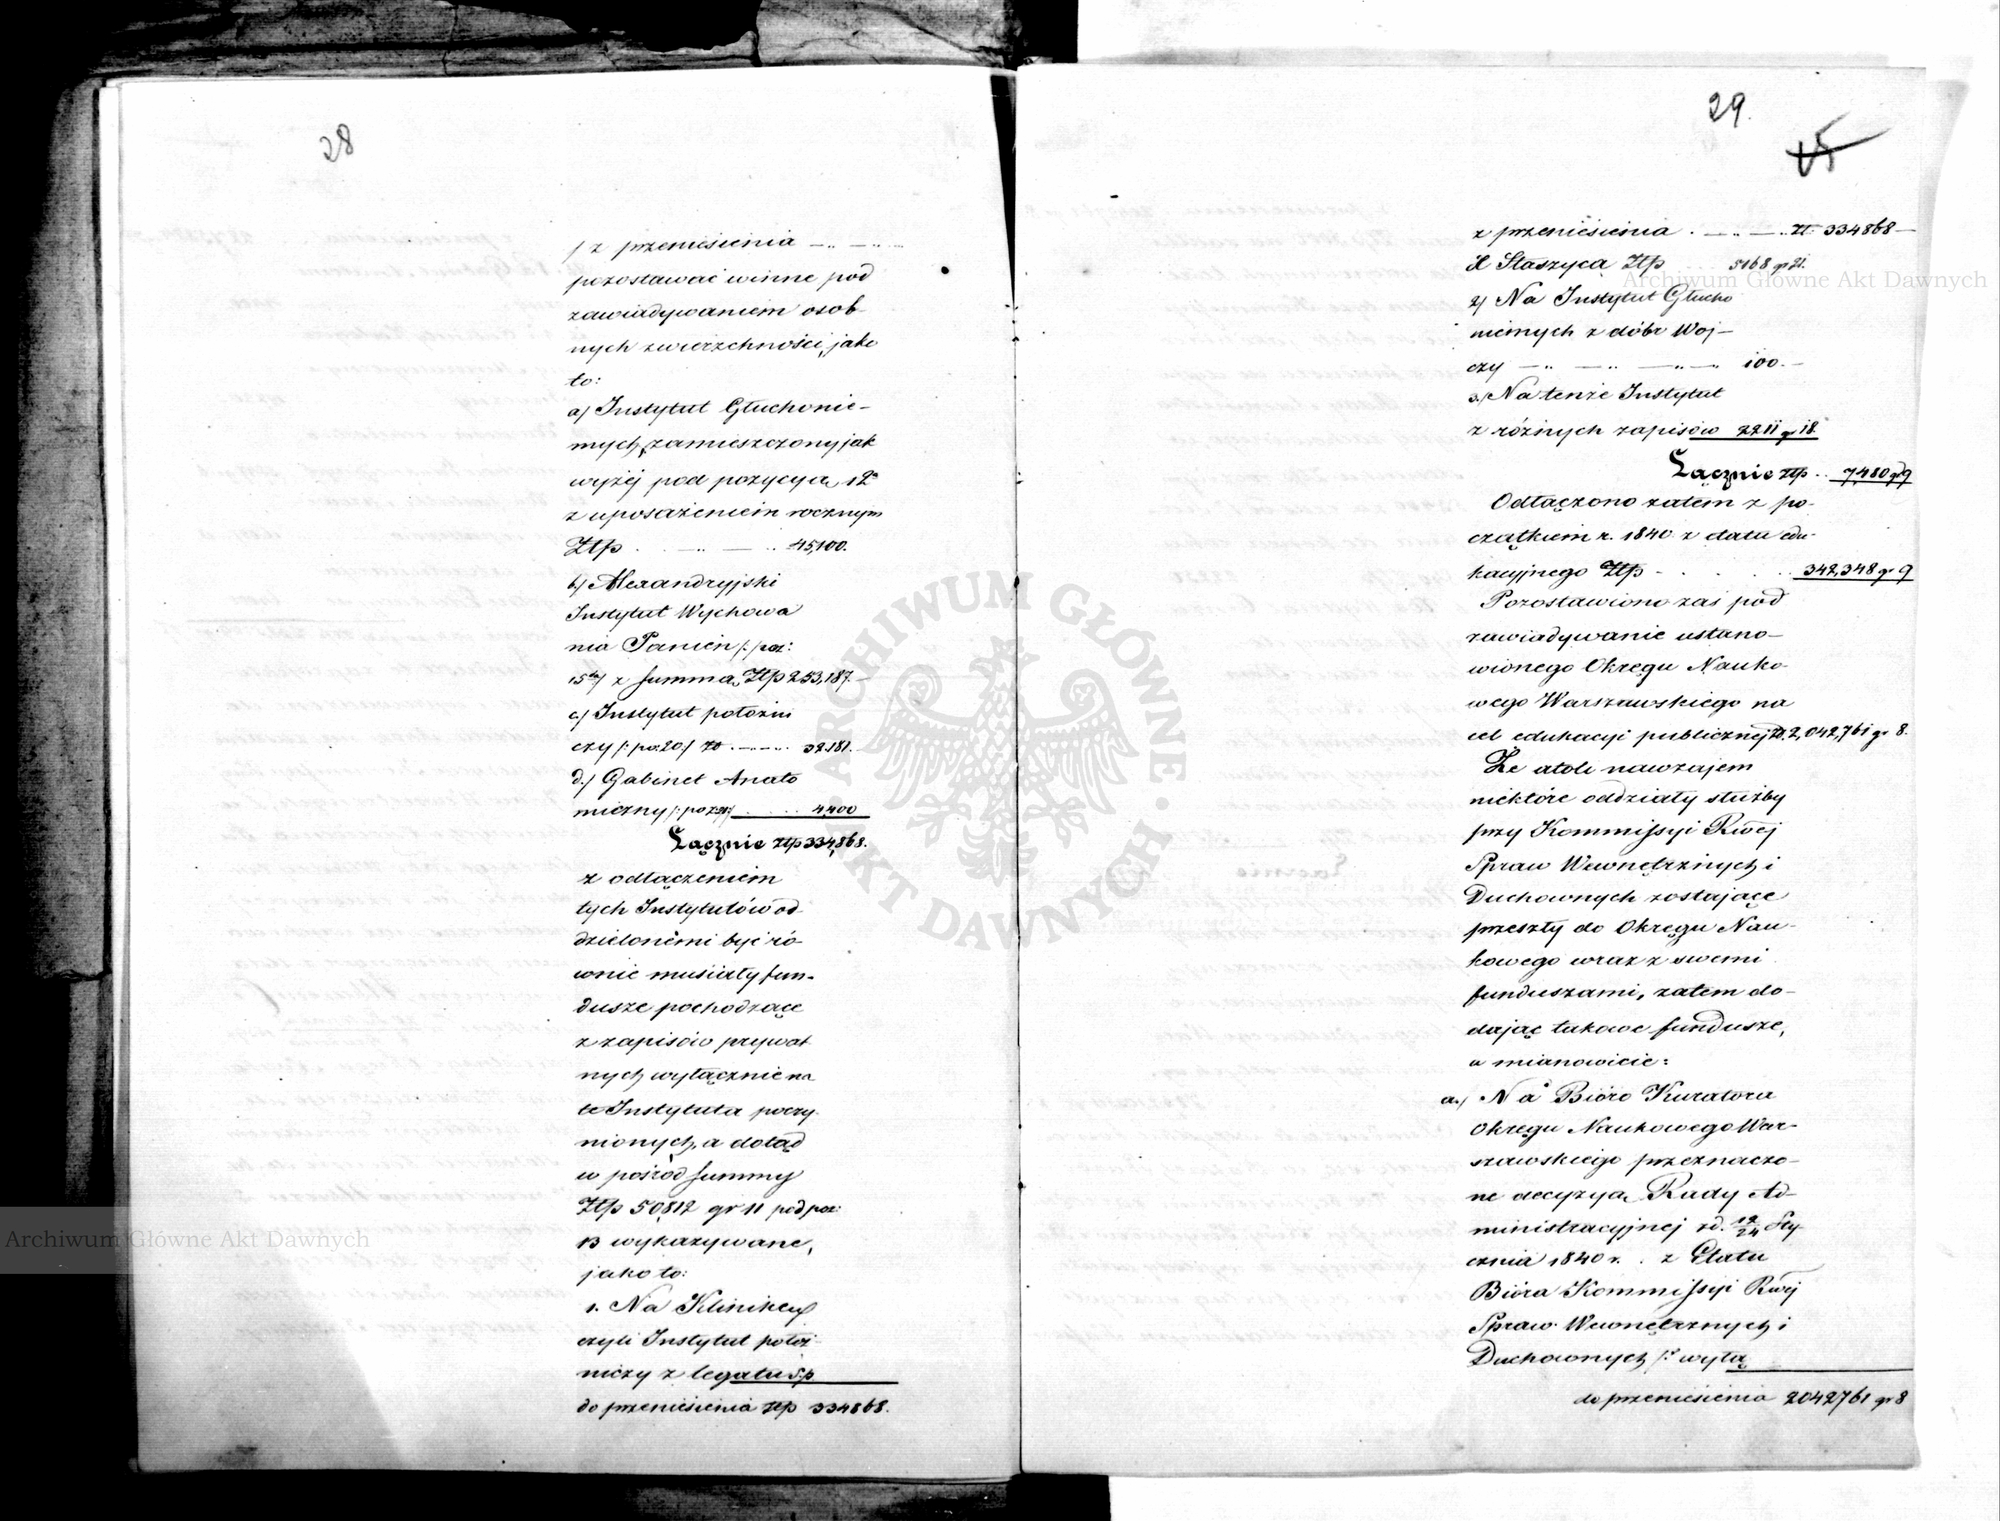 28
z przeniesienia — .. — .. —
pozostawać winne pod
zawiadywaniem osob-
nych zwierzchności, jako
to:
a) Instytut Głuchonie-
mych, zamieszczony jak
wyżej pod pozycyą 12ą
z uposażeniem rocznym
Ztp . — .. — .. 45,100.
b) Alexandryjski
Instytut Wychowa
nia Panien /: poz:
15tej z summą Ztp 253,187.—
c) Instytut położni
czy /: po: 20:/ zł . —..—.. 32.181.
d.) Gabinet Anato
miczny /: poz 4400
Łącznie ztp 334,868.
z odłączeniem
tych Instytutów od-
dzielonemi być ró
wnie musiały fun-
dusze pochodzące
z zapisów prywat
nych wyłącznie na
te Instytuta poczy-
nionych, a dotąd
w pośród summy
Ztp 50812 gr 11 pod poz:
13 wykazywane,
jako to:
1. Na Klinikę
czyli Instytut położ-
niczy z legatu Sp
do przeniesienia ztp 334868.
29.
15
z przeniesienia . — .. — .. zł. 334868—
X Staszyca Ztp 5168 gr 21.
2) Na Instytut Głucho
niemych z dóbr Woj-
czy — .. — .. — .. — 100.—
3.) Na tenże Instytut
z różnych zapisów 2211 gr 18.
Łącznie ztp .. 7,480 gr 9
Odłączono zatem z po-
czątkiem r. 1840 z etatu edu-
kacyjnego Ztp - . . . . 342,348 gr 9
Pozostawiono zaś pod
zawiadywanie ustano-
wionego Okręgu Nauko-
wego Warszawskiego na
cel edukacyi publicznej Zł. 2,042,761 gr 8.
Że atoli nawzajem
niektóre oddziały służby
przy Kommissyi Rwéj
Spraw Wewnętrznych i
Duchownych zostające
przeszły do Okręgu Nau-
kowego wraz z swemi
funduszami, zatem do-
dając takowe fundusze,
a mianowicie:
a.) Na Bióro Kuratora
Okręgu Naukowego War-
szawskiego przeznaczo-
ne decyzyą Rady Ad-
ministracyjnej z d. 12/24 Sty-
cznia 1840 r. z Etatu
Bióra Kommissyi Rwéj
Spraw Wewnętrznych i
Duchownych /: wyłą
do przeniesienia 2042,761 gr 8
Archiwum Główne Akt Dawnych
Archiwum Główne Akt Dawnych
ARCHIWUM GŁÓWNE · AKT DAWNYCH ·